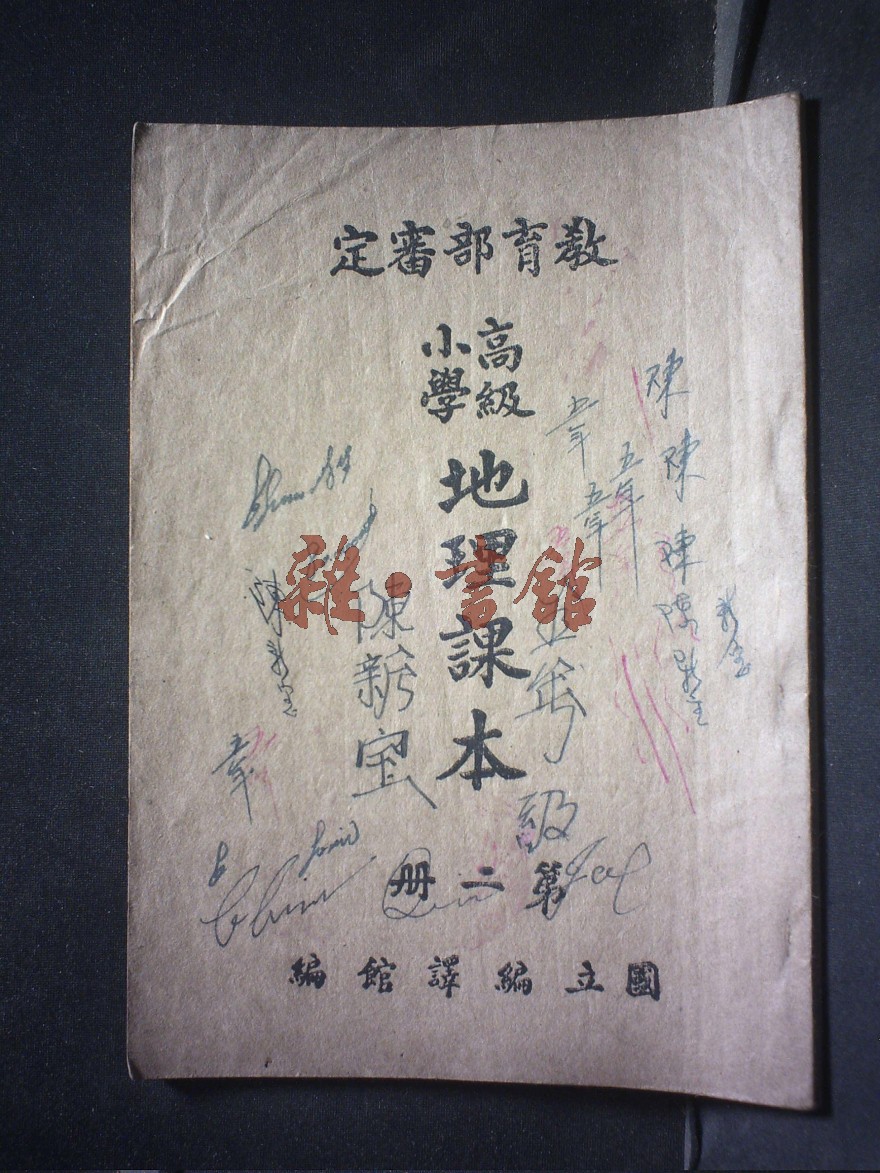 教育部審定
高級
小學
地理課本
第二冊
國立編譯館編
雜·書館
陳新宝
五年
五年
五年
五年
級
陳
陳
陳
陳